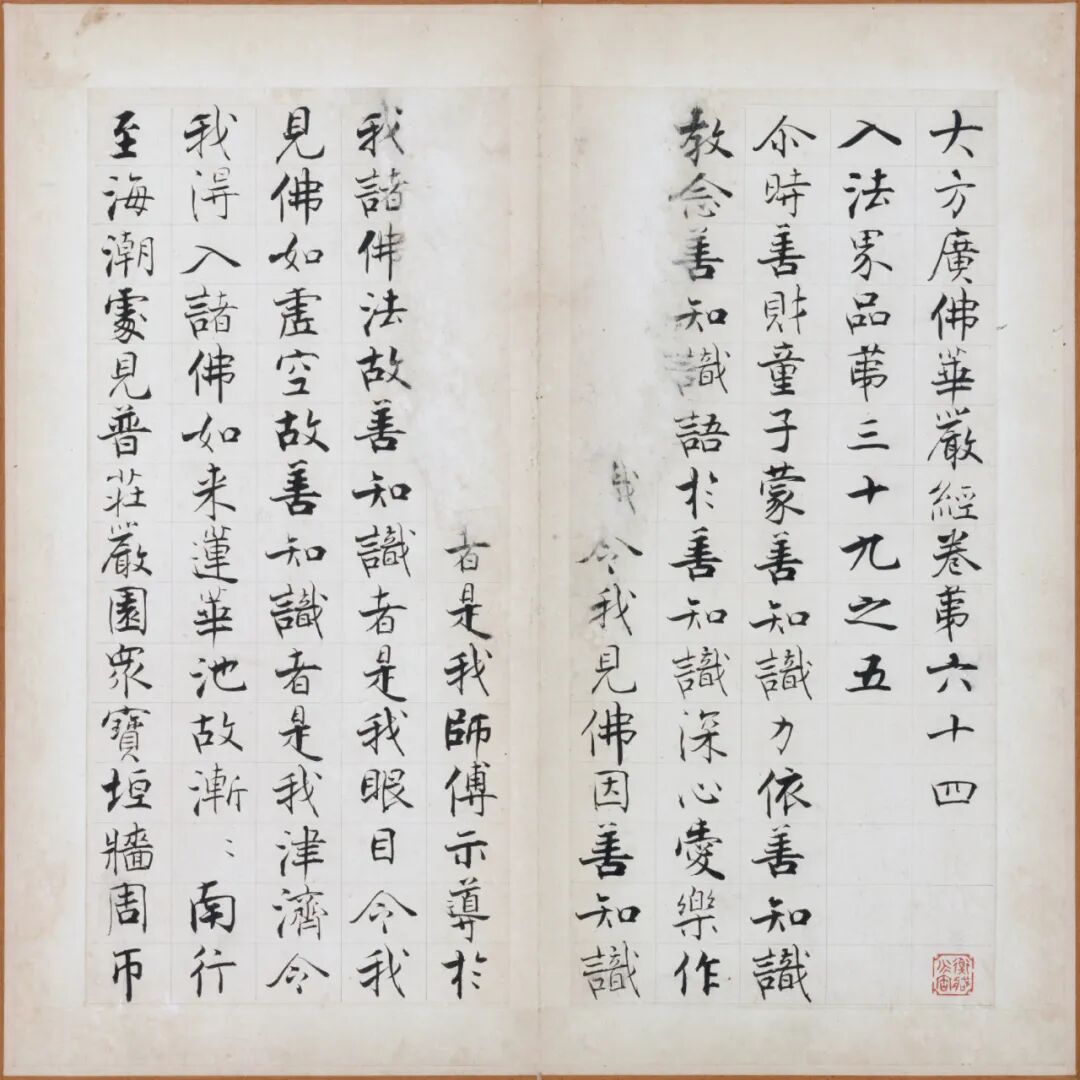 大方廣佛華嚴經卷第六十四
入法界品第三十九之五
尒時善財童子蒙善知識力依善知識
教念善知識語於善知識深心愛樂作
我令我見佛因善知識
者是我師傅示導於
我諸佛法故善知識者是我眼目令我
見佛如虛空故善知識者是我津濟令
我淂入諸佛如来蓮華池故漸〻南行
至海潮處見普莊嚴園眾寶垣牆周帀